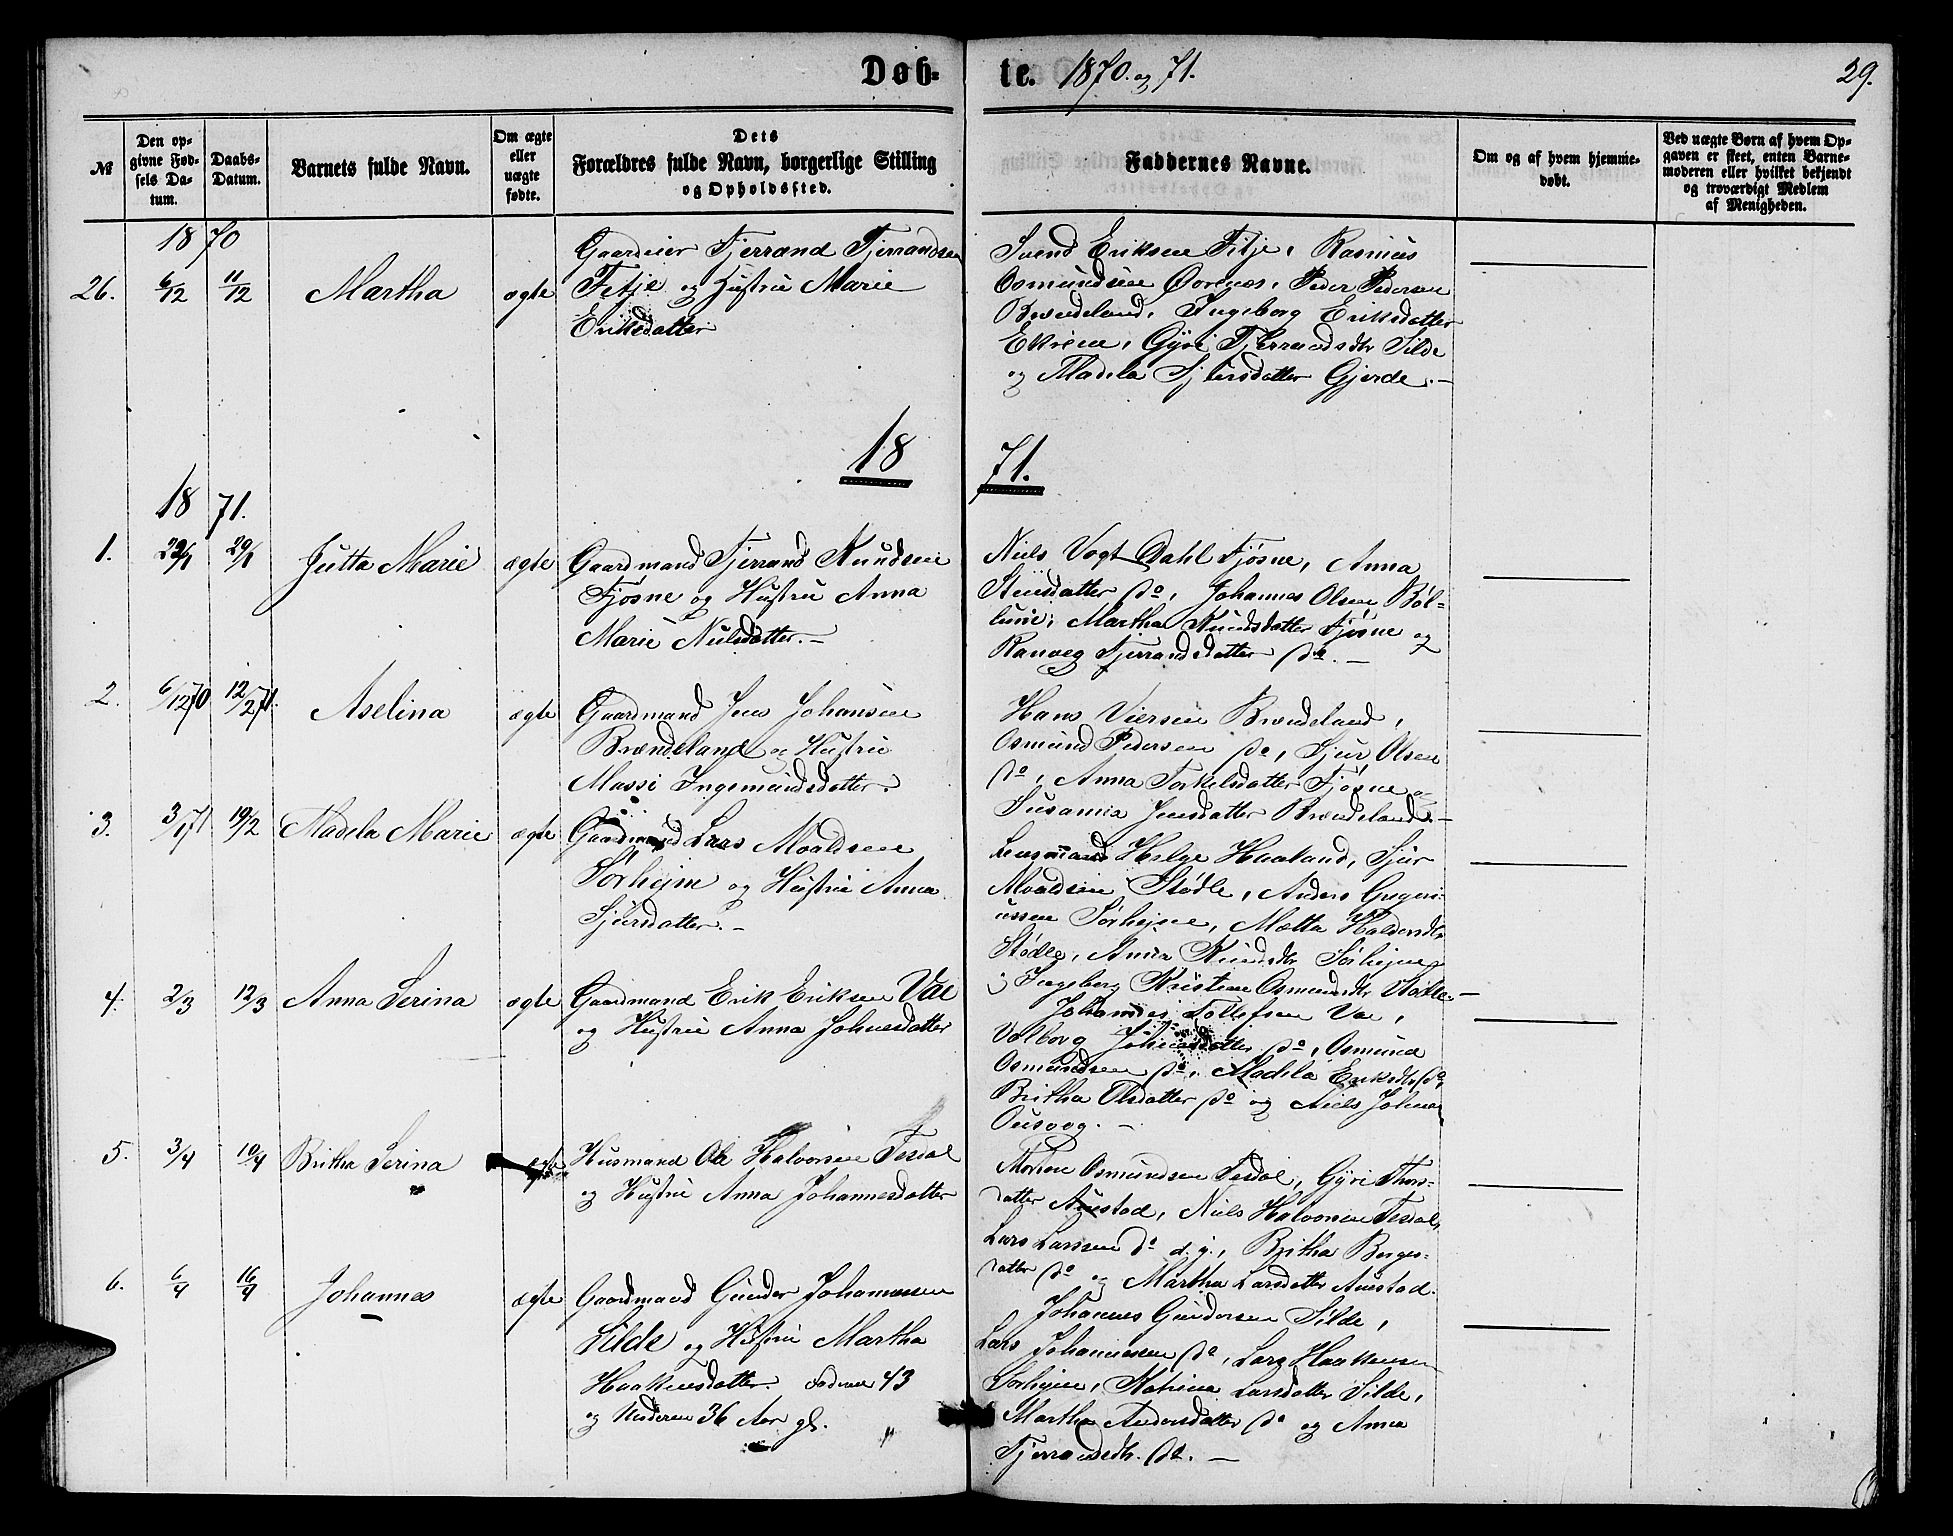 Døb-
te. 1870. og 71.
29.
№
Den op-
givne Fød-
sels Da-
tum.
Daabs-
Datum.
Barnets fulde Navn.
Om ægte
eller
uægte
fødte.
Dets
Forældres fulde Navn, borgerlige Stilling
og Opholdssted.
Faddernes Navne.
Om og af hvem hjemme-
døbt.
Ved uægte Børn af hvem Op-
gaven er skeet, enten Barne-
moderen eller hvilket bekjendt
og troværdigt Medlem
af Menigheden.
1870
26. 6/12 11/12 Martha ægte
Gaardeier Tjerrand Tjerrandsen
Fitje og Hustru Marie
Eriksdatter
Svend Eriksen Fitje, Rasmus
Osmundsen Peder Pedersen
Brændeland, Ingeborg Eriksdatter
Ekrene, Gyri Tjerrandsdtr Silde
og Madela Sjursdatter Gjerde.-
1871.
1871.
1. 29/1 Jutta Marie ægte
Gaardmand Tjerrand Knudsen
Fjøsne og Hustru Anna
Marie Nilsdatter.-
Niels Vogt Dahl Fjøsne, Anna
do, Johannes Olsen Böl-
Martha Knudsdatter Fjøsne og
Ranveg Tjerrandsdatter do.-
2. 6/12 70 12/2 71. Aselina ægte
Gaardmand Jens Johansen
Brændeland og Hustru
Massi Ingemundsdatter.
Hans Viersen Brændeland,
Osmund Pedersen do, Sjur Olsen
do, Anna Torkelsdatter Fjøsne o
Susanna Jensdatter Brændeland.-
3. 3/1 71 19/2 Madela Marie ægte
Gaardmand Lars Moaldsen
Sørhejm og Hustru Anna
Sjursdatter.-
Lensmand Helge Haaland, Sjur
Moaldsen Stødle, Anders Gregeri-
ussen Sørhejm, Mætta Haldorsdtr
Stødle, Anna Knudsdtr Sørhejm
og Ingeborg Kristine Osmundsdtr Stødle-
4. 2/3 12/3 Anna Serina ægte
Gaardmand Erik Eriksen Vae
og Hustru Anna Johnesdatter
Johannes Tollefsen Vae,
Valborg do, Osmund
Osmundsen do, Madela Eriksdtr do,
Britha Olsdatter do og Niels Johnsen
5. 3/4 10/4 Britha Serina ægte
Husmand Ole Halvorsen Tesdal
og Hustru Anna Johannesdatter
Osmundsen Tesdal, Gyri Thors-
datter Austad, Niels Halvorsen Tesdal,
Lars Larssen do d. y., Britha Børges-
datter do og Martha Larsdatter Austad.
6. 6/4 16/4 Johannes ægte
Gaardmand Gunder Johannessen
Silde og Hustru Martha
Haakensdatter. Faderen 43
og Moderen 36 Aar gl.
Johannes Gundersen Silde,
Lars Johannessen do, Lars Haakensen
Sørhejm, Larsdatter Silde,
Martha Andersdatter do og Anna
Tjerrandsdtr. do.-